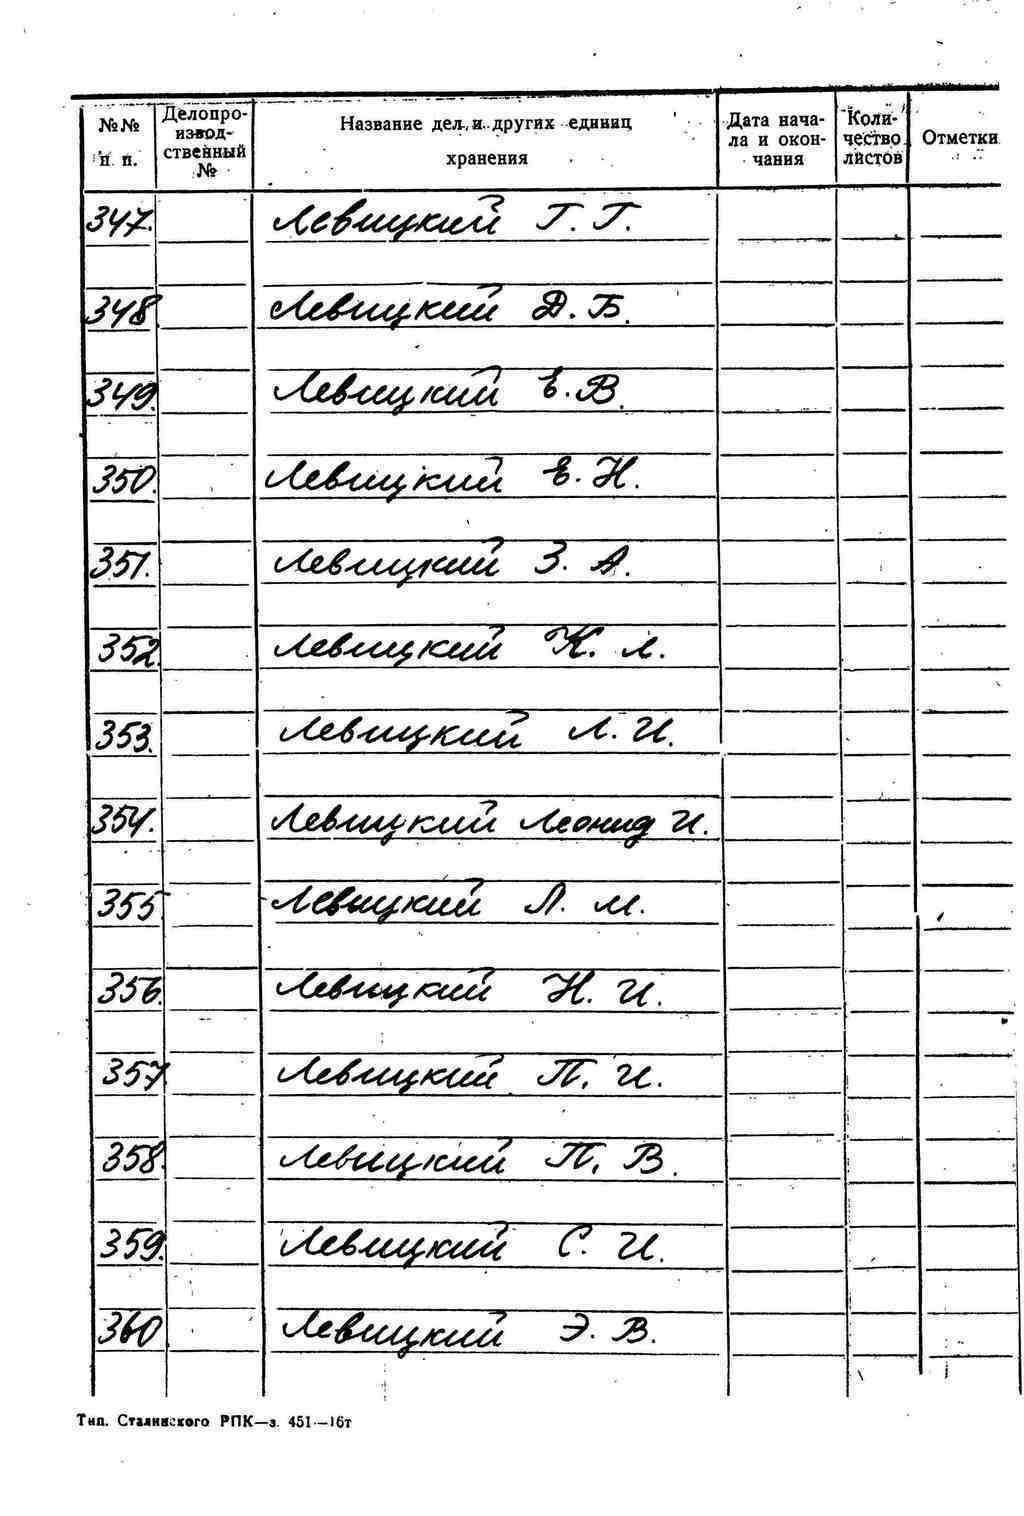 №№ п. п. Делопроизводственный № Название дел и других единиц хранения Дата начала и окончания Количество листов Отметки
347. Левицкий Г. Г.
348. Левицкий Д. Б.
349. Левицкий Е. В.
350. Левицкий Е. Н.
351. Левицкий З. А.
352. Левицкий К. Л.
353. Левицкий Л. И.
354. Левицкий Леонид И.
355 Левицкий Л. М.
356. Левицкий Н. И.
357 Левицкий П. И.
358. Левицкий П. В.
359. Левицкий С. И.
360 Левицкий Э. В.
Тип. Сталинского РПК—з. 451—16т